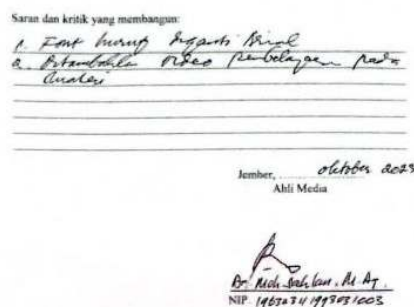 Saran dan kritik yang membangun:
1. Font huruf diganti Arial
2. Ditambahkan video pembelajaran pada
materi
Jember, oktober 2023
Ahli Media
Dr. Moh. Sahlan, M.Ag.
NIP. 196303111993031003